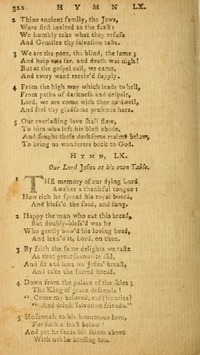 322. H Y M N LX.
2 Thine ancient family, the Jews,
Were first invited to the feast:
We humbly take what they refuse
And Gentiles thy salvation take.
3 We are the poor, the blind, the lame;
And help was far, and death was nigh!
But at the gospel call, we came,
And every want receiv'd supply.
4 From the high way which leads to hell,
From paths of darkness and despair,
Lord, we are come with thee to dwell,
And feel thy presence here.
5 Our everlasting love shall flow,
To him who left his blest abode,
And sought these darksome realms below,
To bring us wanderers back to God.
H Y M N, LX.
Our Lord Jesus at his own Table.
1 THE memory of our dying Lord
Awakes a thankful tongue:
How rich he spread his royal board,
And bless'd the food, and sung.
2 Happy the man who eat this bread,
But doubly-bless'd was he
Who gently bow'd his loving head,
And lean'd it, Lord, on thee.
3 By faith the same delights we taste
As that great favourite did,
And sit and lean on Jesus' breast,
And take the sacred bread.
4 Down from the palace of the skies;
The King of grace descends!
"Come my beloved, eat (he cries)
"And drink salvation friends."
5 Hosannah to his bounteous love,
For such a feast below!
And yet he feeds his saints above
With nobler blessings too.